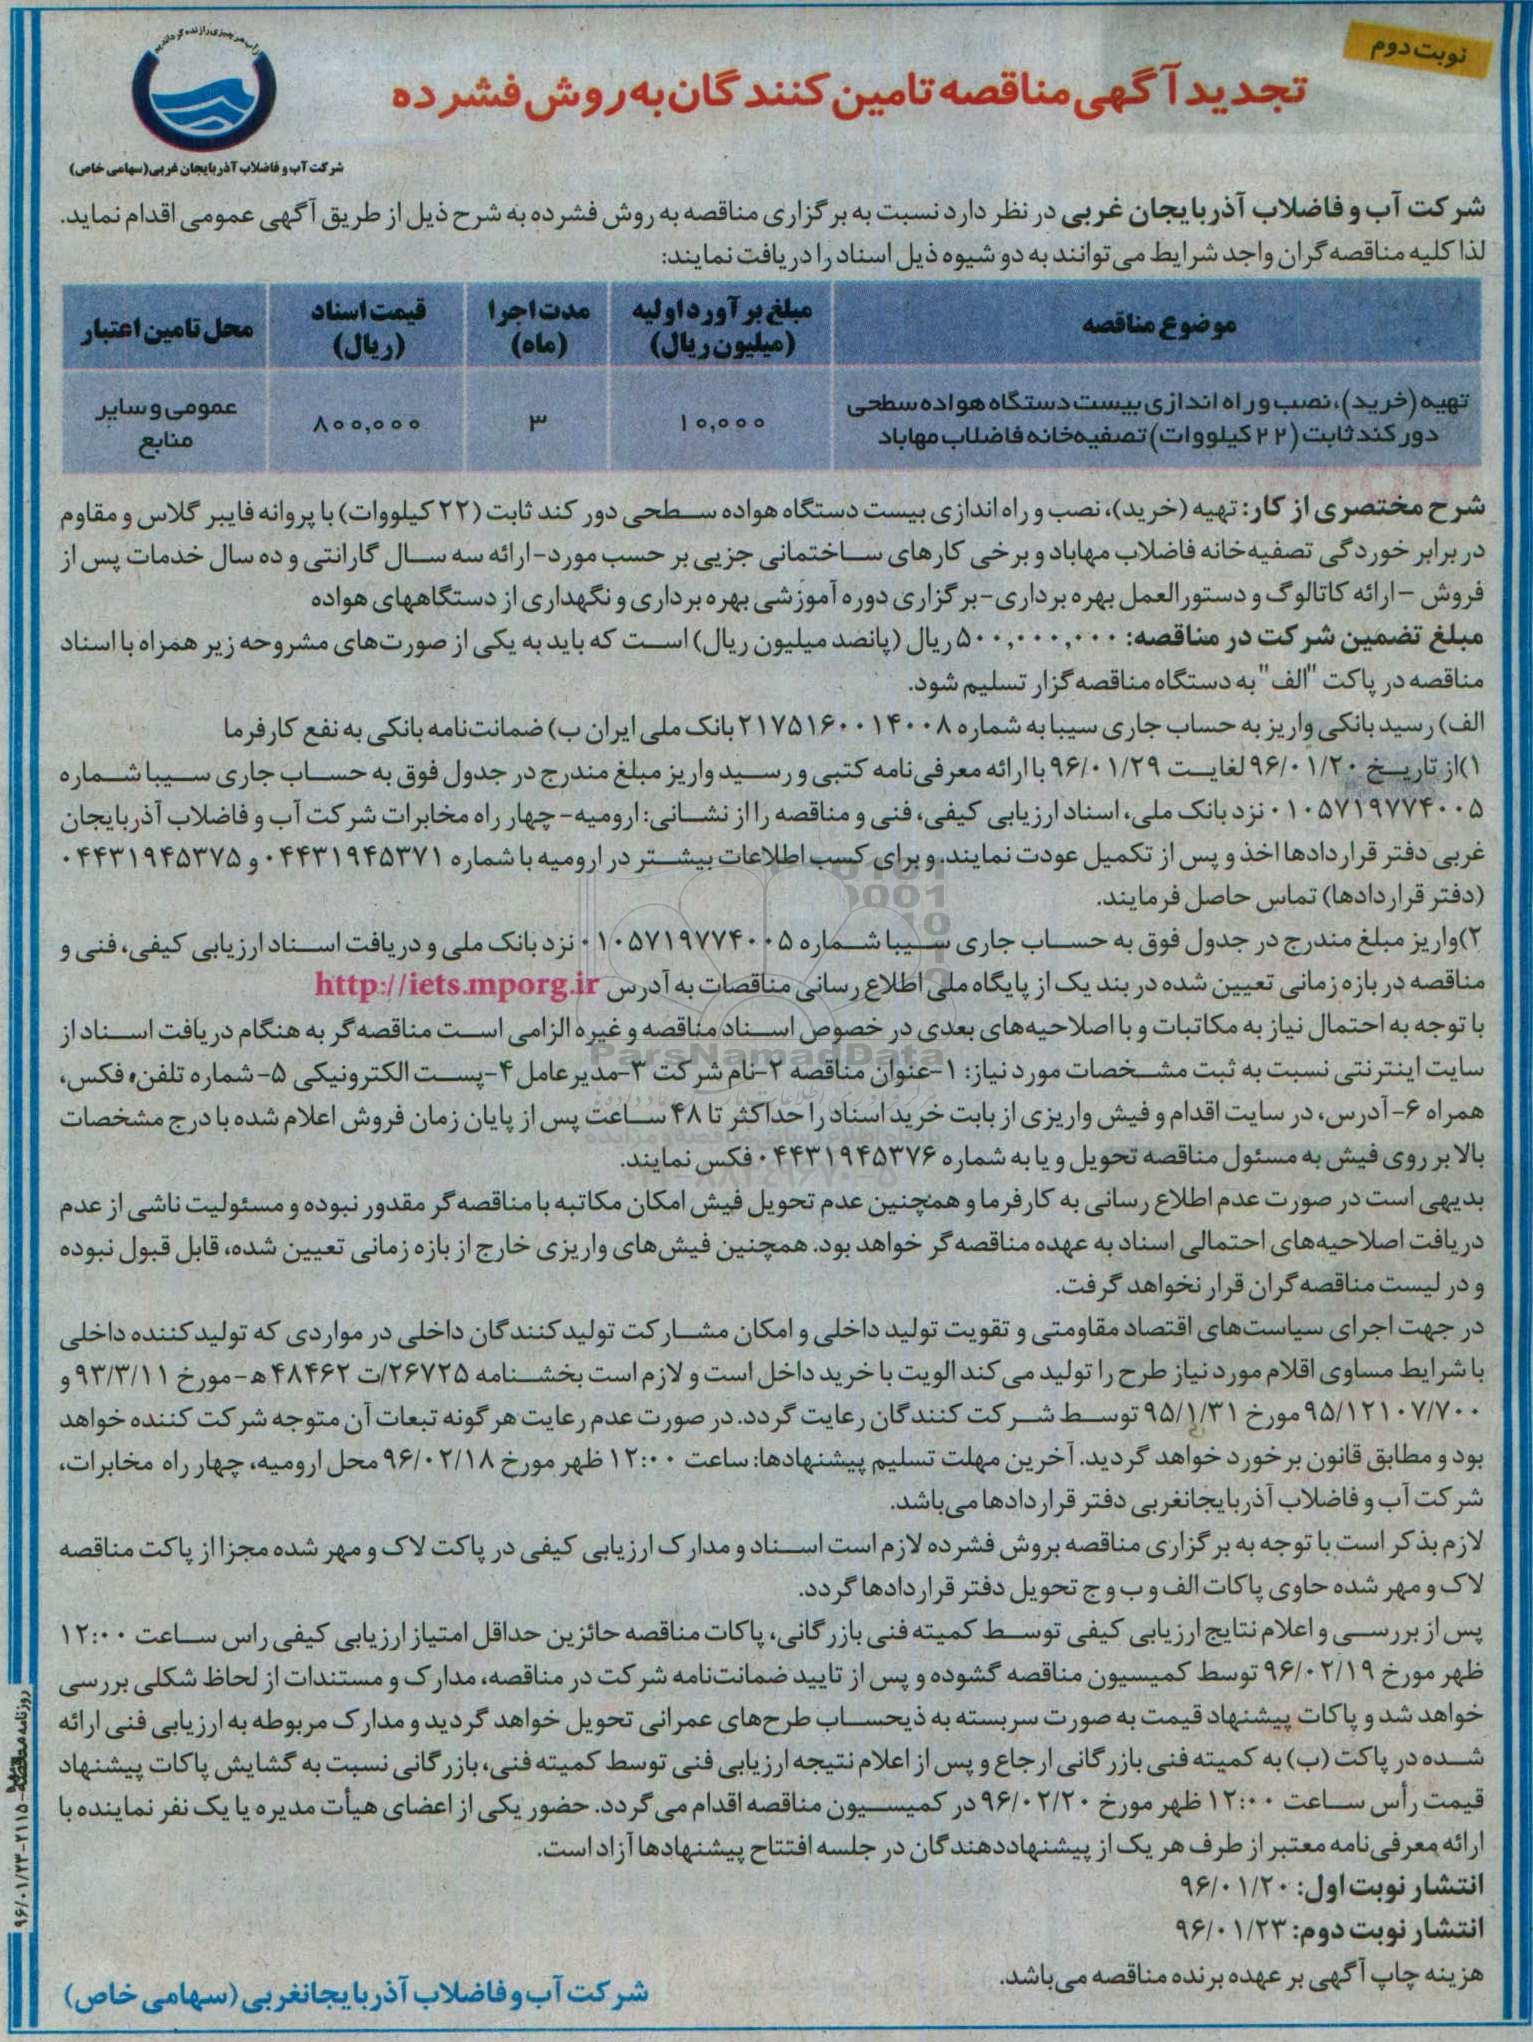 نوبت دوم
تجدید آگهی مناقصه تامین کنندگان به روش فشرده
از آب هر چیزی را زنده گرداندیم
شرکت آب و فاضلاب آذربایجان غربی (سهامی خاص)
شرکت آب و فاضلاب آذربایجان غربی در نظر دارد نسبت به برگزاری مناقصه به روش فشرده به شرح ذیل از طریق آگهی عمومی اقدام نماید.
لذا کلیه مناقصه گران واجد شرایط می توانند به دو شیوه ذیل اسناد را دریافت نمایند:
موضوع مناقصه
مبلغ برآورد اولیه (میلیون ریال)
مدت اجرا (ماه)
قیمت اسناد (ریال)
محل تامین اعتبار
تهیه (خرید)، نصب و راه اندازی بیست دستگاه هواده سطحی
دور کند ثابت (۲۲ کیلووات) تصفیه‌خانه فاضلاب مهاباد
۱۰,۰۰۰
۳
۸۰۰,۰۰۰
عمومی و سایر
منابع
شرح مختصری از کار: تهیه (خرید)، نصب و راه اندازی بیست دستگاه هواده سطحی دور کند ثابت (۲۲ کیلووات) با پروانه فایبر گلاس و مقاوم
در برابر خوردگی تصفیه خانه فاضلاب مهاباد و برخی کارهای ساختمانی جزیی بر حسب مورد-ارائه سه سال گارانتی و ده سال خدمات پس از
فروش -ارائه کاتالوگ و دستورالعمل بهره برداری-برگزاری دوره آموزشی بهره برداری و نگهداری از دستگاههای هواده
مبلغ تضمین شرکت در مناقصه: ۵۰۰,۰۰۰,۰۰۰ ریال (پانصد میلیون ریال) است که باید به یکی از صورت‌های مشروحه زیر همراه با اسناد
مناقصه در پاکت "الف" به دستگاه مناقصه گزار تسلیم شود.
الف) رسید بانکی واریز به حساب جاری سیبا به شماره ۲۱۷۵۱۶۰۰۱۴۰۰۸ بانک ملی ایران ب) ضمانت‌نامه بانکی به نفع کارفرما
۱)از تاریخ ۹۶/۰۱/۲۰ لغایت ۹۶/۰۱/۲۹ با ارائه معرفی‌نامه کتبی و رسید واریز مبلغ مندرج در جدول فوق به حساب جاری سیبا شماره
۰۱۰۵۷۱۹۷۷۴۰۰۵ نزد بانک ملی، اسناد ارزیابی کیفی، فنی و مناقصه را از نشانی: ارومیه- چهار راه مخابرات شرکت آب و فاضلاب آذربایجان
غربی دفتر قراردادها اخذ و پس از تکمیل عودت نمایند. و برای کسب اطلاعات بیشتر در ارومیه با شماره ۰۴۴۳۱۹۴۵۳۷۱ و ۰۴۴۳۱۹۴۵۳۷۵
(دفتر قراردادها) تماس حاصل فرمایند.
۲)واریز مبلغ مندرج در جدول فوق به حساب جاری سیبا شماره ۰۱۰۵۷۱۹۷۷۴۰۰۵ نزد بانک ملی و دریافت اسناد ارزیابی کیفی، فنی و
مناقصه در بازه زمانی تعیین شده در بند یک از پایگاه ملی اطلاع رسانی مناقصات به آدرس http://iets.mporg.ir
با توجه به احتمال نیاز به مکاتبات و یا اصلاحیه‌های بعدی در خصوص اسناد مناقصه و غیره الزامی است مناقصه‌گر به هنگام دریافت اسناد از
سایت اینترنتی نسبت به ثبت مشخصات مورد نیاز: ۱-عنوان مناقصه ۲-نام شرکت ۳-مدیرعامل ۴-پست الکترونیکی ۵-شماره تلفن، فکس،
همراه ۶- آدرس، در سایت اقدام و فیش واریزی از بابت خرید اسناد را حداکثر تا ۴۸ ساعت پس از پایان زمان فروش اعلام شده با درج مشخصات
بالا بر روی فیش به مسئول مناقصه تحویل و یا به شماره ۰۴۴۳۱۹۴۵۳۷۶ فکس نمایند.
ParsNamadData
بدیهی است در صورت عدم اطلاع رسانی به کارفرما و همچنین عدم تحویل فیش امکان مکاتبه با مناقصه‌گر مقدور نبوده و مسئولیت ناشی از عدم
دریافت اصلاحیه‌های احتمالی اسناد به عهده مناقصه‌گر خواهد بود. همچنین فیش‌های واریزی خارج از بازه زمانی تعیین شده، قابل قبول نبوده
و در لیست مناقصه گران قرار نخواهد گرفت.
در جهت اجرای سیاست‌های اقتصاد مقاومتی و تقویت تولید داخلی و امکان مشارکت تولیدکنندگان داخلی در مواردی که تولیدکننده داخلی
با شرایط مساوی اقلام مورد نیاز طرح را تولید می کند الویت با خرید داخل است و لازم است بخشنامه ۲۶۷۲۵/ت ۴۸۴۶۲ ه-مورخ ۹۳/۳/۱۱ و
۹۵/۱۲۱۰۷/۷۰۰ مورخ ۹۵/۱/۳۱ توسط شرکت کنندگان رعایت گردد. در صورت عدم رعایت هرگونه تبعات آن متوجه شرکت کننده خواهد
بود و مطابق قانون برخورد خواهد گردید. آخرین مهلت تسلیم پیشنهادها: ساعت ۱۲:۰۰ ظهر مورخ ۹۶/۰۲/۱۸ محل ارومیه، چهار راه مخابرات،
شرکت آب و فاضلاب آذربایجانغربی دفتر قراردادها می‌باشد.
لازم بذکر است با توجه به برگزاری مناقصه بروش فشرده لازم است اسناد و مدارک ارزیابی کیفی در پاکت لاک و مهر شده مجزا از پاکت مناقصه
لاک و مهر شده حاوی پاکات الف و ب و ج تحویل دفتر قراردادها گردد.
پس از بررسی و اعلام نتایج ارزیابی کیفی توسط کمیته فنی بازرگانی، پاکات مناقصه حائزین حداقل امتیاز ارزیابی کیفی راس ساعت ۱۲:۰۰
ظهر مورخ ۹۶/۰۲/۱۹ توسط کمیسیون مناقصه گشوده و پس از تایید ضمانت‌نامه شرکت در مناقصه، مدارک و مستندات از لحاظ شکلی بررسی
خواهد شد و پاکات پیشنهاد قیمت به صورت سربسته به ذیحساب طرح‌های عمرانی تحویل خواهد گردید و مدارک مربوطه به ارزیابی فنی ارائه
شده در پاکت (ب) به کمیته فنی بازرگانی ارجاع و پس از اعلام نتیجه ارزیابی فنی توسط کمیته فنی، بازرگانی نسبت به گشایش پاکات پیشنهاد
قیمت رأس ساعت ۱۲:۰۰ ظهر مورخ ۹۶/۰۲/۲۰ در کمیسیون مناقصه اقدام می گردد. حضور یکی از اعضای هیأت مدیره یا یک نفر نماینده با
ارائه معرفی‌نامه معتبر از طرف هر یک از پیشنهاددهندگان در جلسه افتتاح پیشنهادها آزاد است.
انتشار نوبت اول: ۹۶/۰۱/۲۰
انتشار نوبت دوم: ۹۶/۰۱/۲۳
هزینه چاپ آگهی بر عهده برنده مناقصه می‌باشد.
شرکت آب و فاضلاب آذربایجانغربی (سهامی خاص)
روزنامه مناقصه -۲۱۱۵-۹۶/۰۱/۲۳